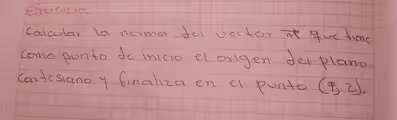 Ejercicio.
Calcular la norma del vector que tiene
como punto de inicio el origen del plano
cartesiano y finaliza en el punto (9, 2).